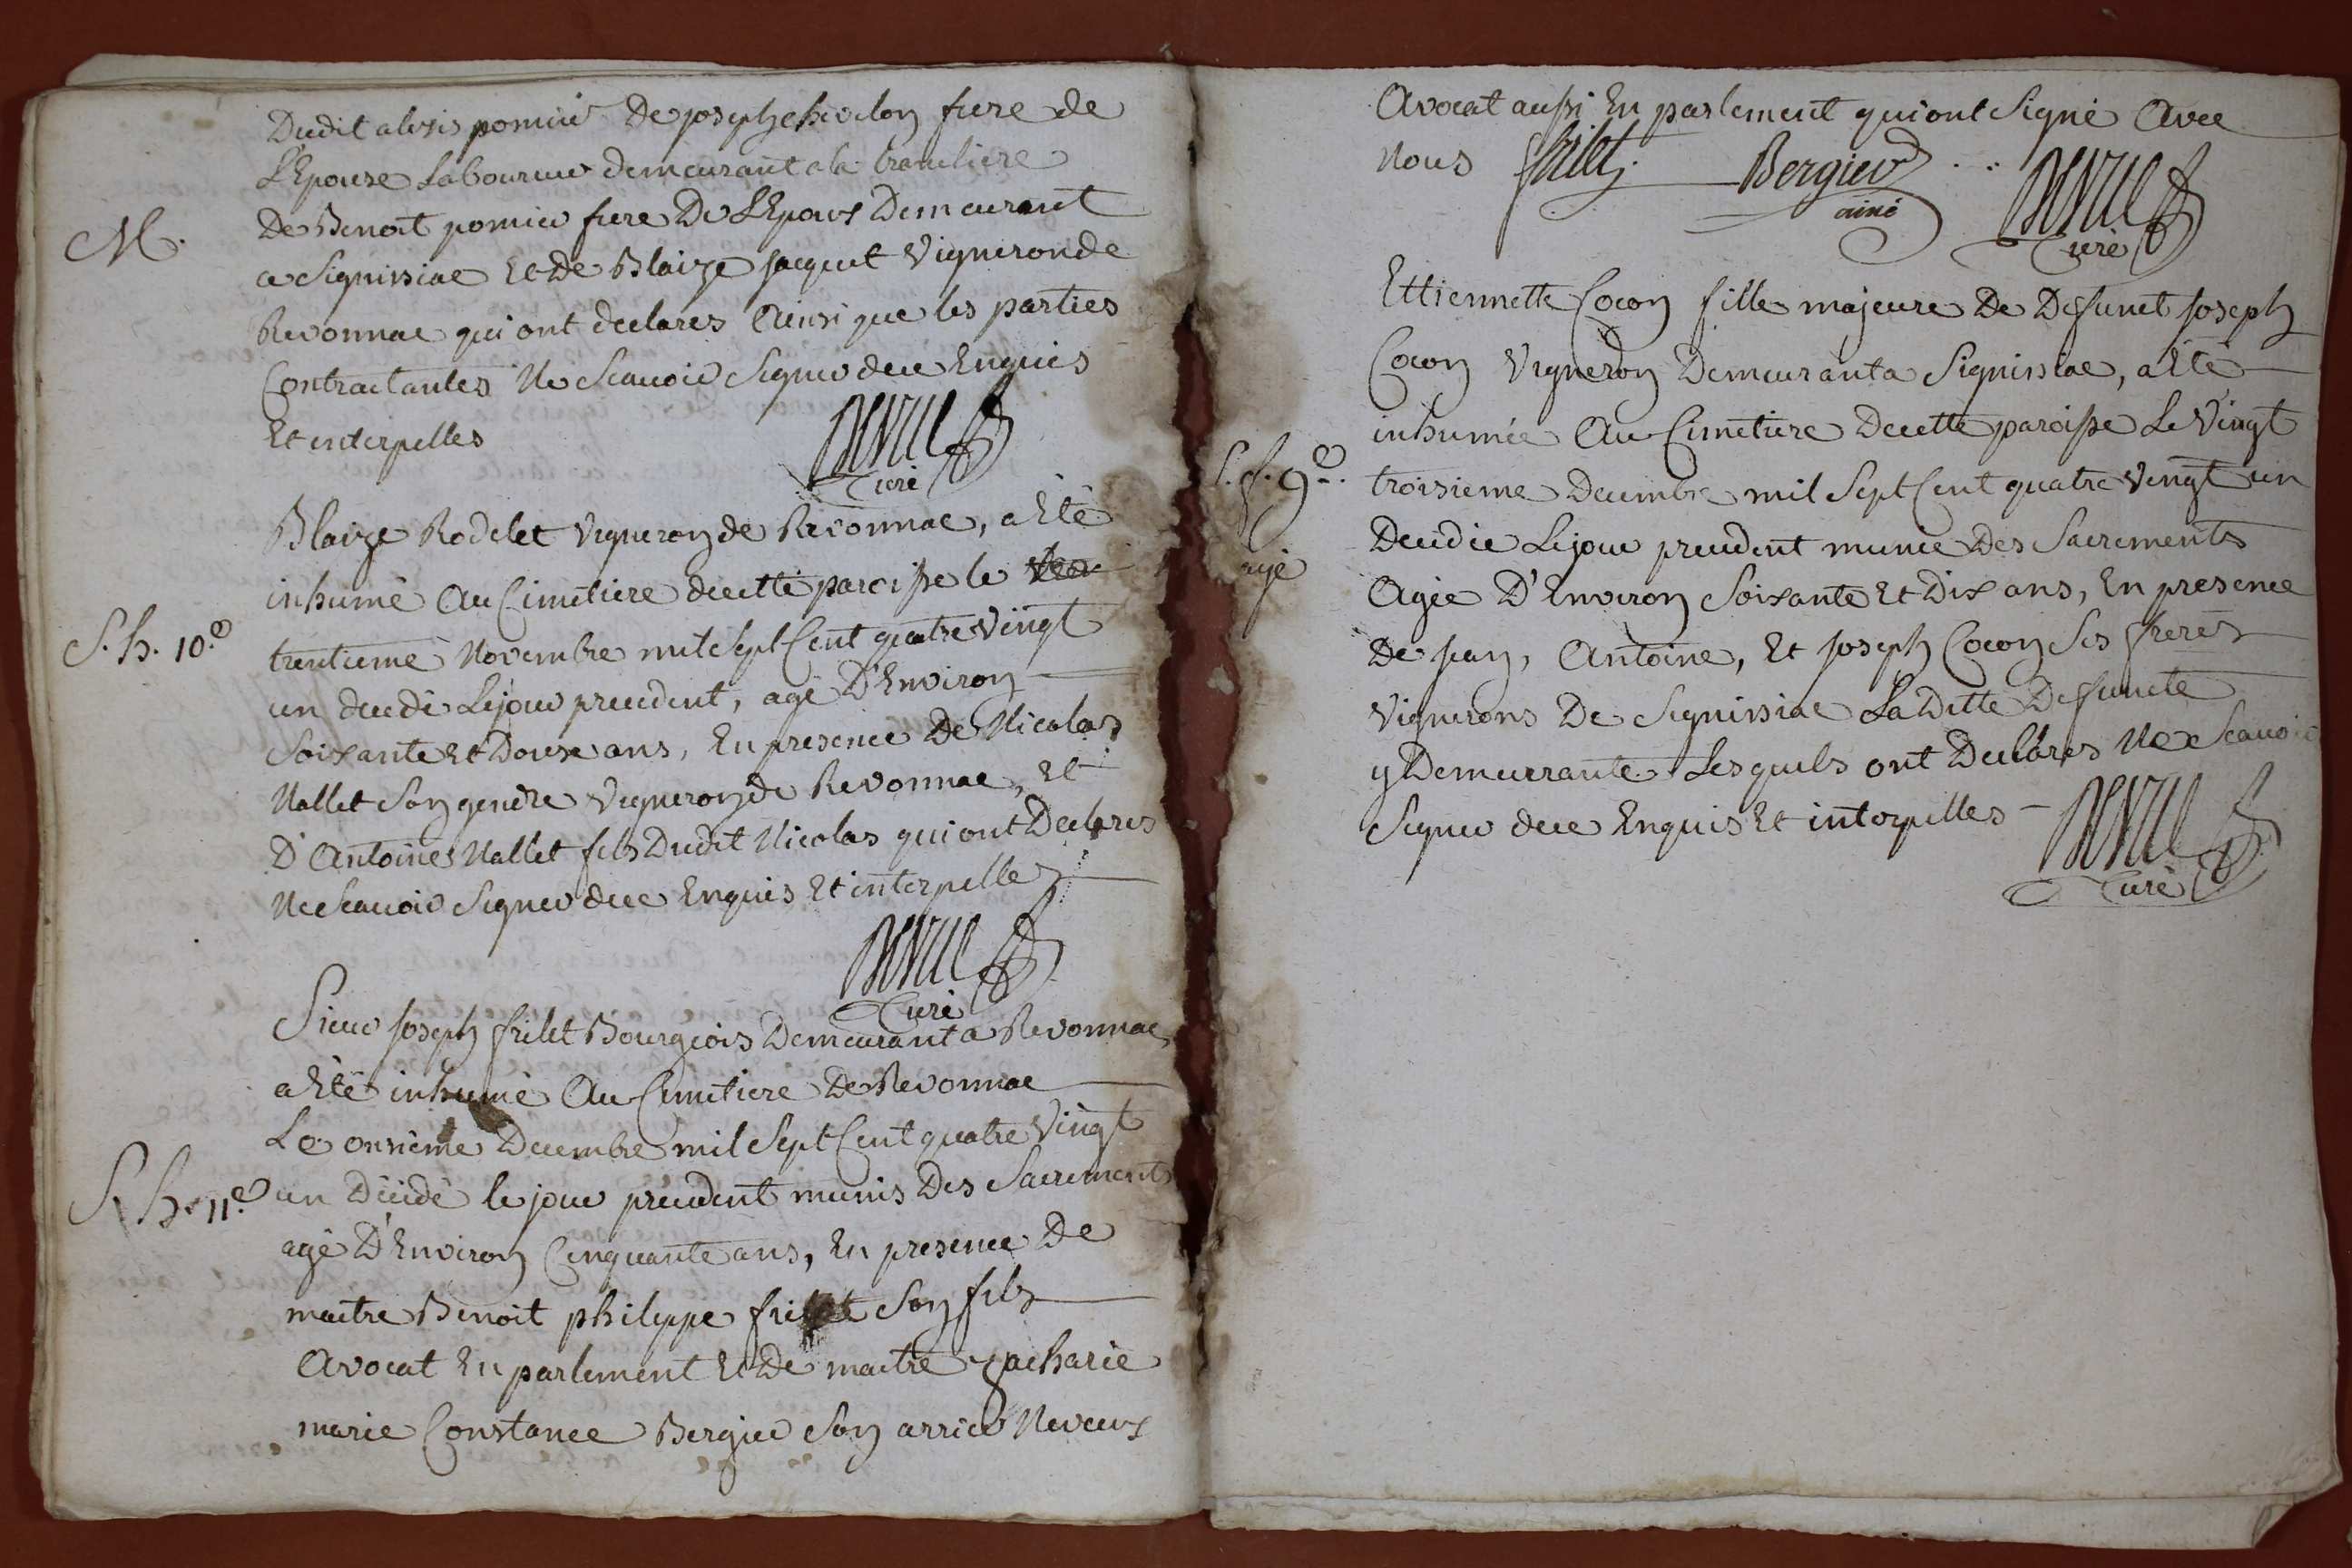 Dudit alexis pomier De joseph chevelon frere de
L'Epouse Laboureur demeurant a la tranclière
M.
De Benoit pomier frere De L'Epoux Demeurant
a Signissiac Et De Blaize jaquet Vigneron de
Revonnac qui ont declarés Ainsi que les parties
Contractantes Ne Scavoir Signer de ce Enquis
Et interpellés
Curé
Blaize Rodelet Vigneron de Revonnac, a Eté
inhumé Au Cimetiere de cette paroisse le
S. h. 10.e
trentieme Novembre mil Sept Cent quatre Vingt
un decedé Le jour precedent, agé D'Environ
Soixante Et Douze ans, En presence De Nicolas
Nallet Son gendre Vigneron de Revonnac, Et
D'Antoine Nallet fils Dudit Nicolas qui ont Declarés
Ne Scavoir Signer de ce Enquis Et interpellés
Curé
Sieur Joseph frilet Bourgeois Demeurant a Revonnac,
a Eté inhumé Au Cimetiere De Revonnac
Le onzième Decembre mil Sept Cent quatre Vingt
S. h. 11.e
un Décédé le jour précedent munis Des Sacrements
agé D'Environ Cinquante ans, En presence De
maitre Benoit philippe frilet Son fils
Avocat En parlement Et De maitre Zacharie
marie Constance Bergier Son arrier Neveux
Avocat aussi En parlement qui ont Signé Avec
Nous frilet. Bergier
ainé
Curé
Ettiennette Cocon fille majeure De Defunct Joseph
Cocon Vigneron Demeurant a Signissiac, a Eté
inhumée Au Cimetiere De cette paroisse Le Vingt
S. f. 9.e
troisieme Decembre mil Sept Cent quatre Vingt un
Decedée Le jour precedent munie Des Sacrements
agé
Agée D'Environ Soixante Et Dix ans, En presence
De jean, Antoine, Et Joseph Cocon Ses freres
Vignerons De Signissiac La Ditte Defuncte
y Demeurrante Lesquels ont Declarés Ne Scavoir
Signer de ce Enquis Et interpellés
Curé